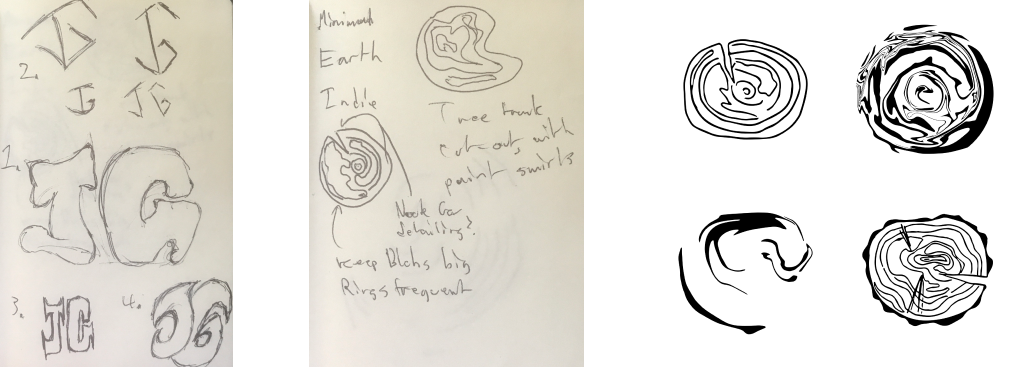 JG
JG
2.
JG
JG
1.
JG
3.
JG
4.
JG
Minimal
Earth
Indie
Tree trunk
cut-outs with
paint swirls
detailing?
keep Blobs big
Rings frequent